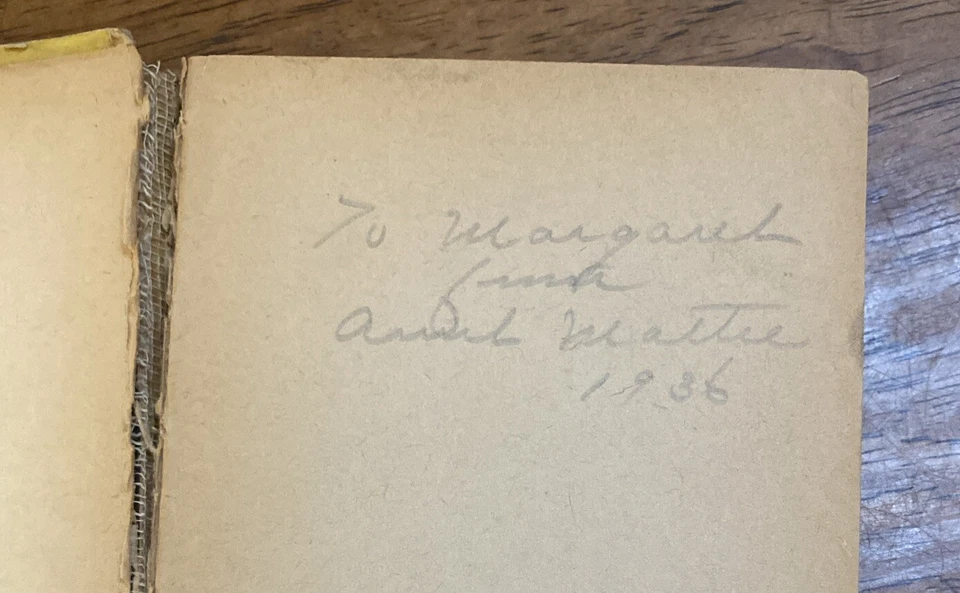 To Margaret
from
Aunt Mattie
1936